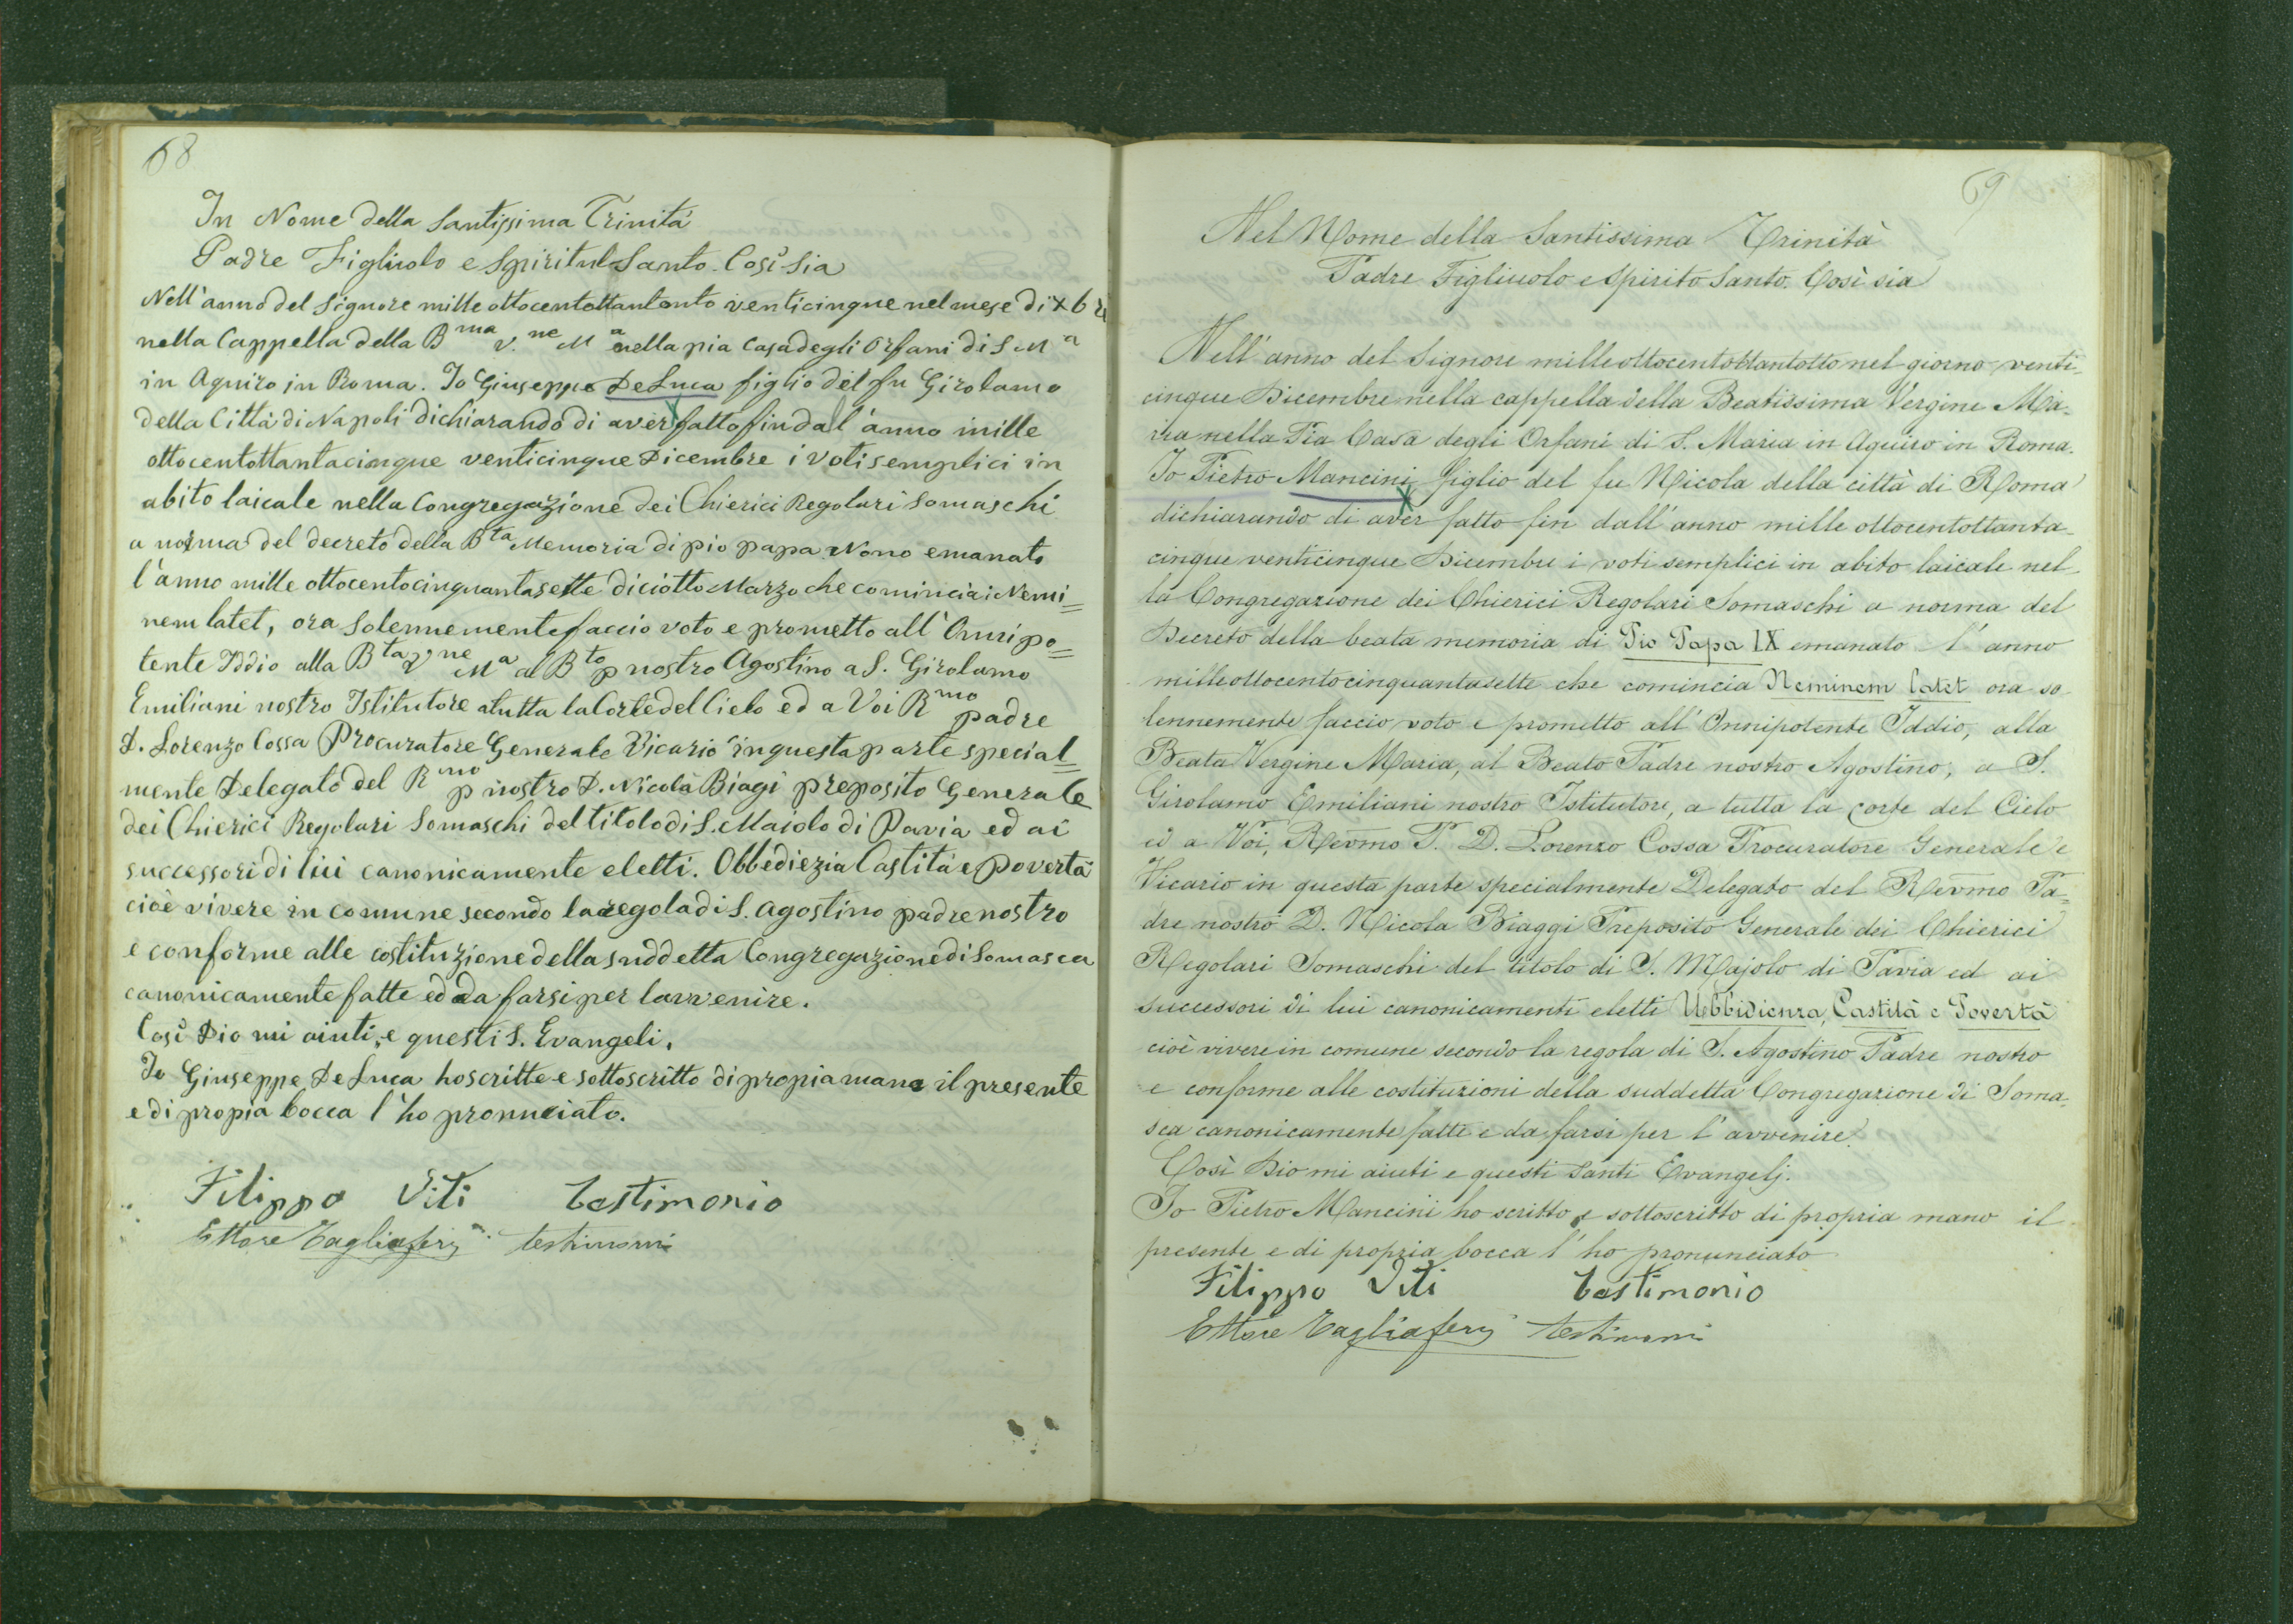 68
In Nome della Santissima Trinità
Padre Figliuolo e Spiritul Santo. Così Sia
Nell'anno del Signore mille ottocentottantonto venticinque nel mese di Xbri
nella Cappella della Bma V.ne Ma nella pia Casa degli Orfani di S Ma
in Aquiro in Roma. Io Giuseppe De Luca figlio del fu Girolamo
della Città di Napoli dichiarando di aver fatto fin dal l'anno mille
ottocentottantacinque venticinque Dicembre i Voti semplici in
abito laicale nella Congregazione dei Chierici Regolari Somaschi
a norma del decreto della Bta Memoria di pio papa Nono emanato
l'anno mille ottocentocinquantasette diciotto Marzo che comincia i Nemi=
nem latet, ora Solennemente faccio voto e prometto all'Omnipo=
tente Iddio alla Bta V.ne Ma al Bto p nostro Agostino a S. Girolamo
Emiliani nostro Istitutore a tutta la Corte del Cielo ed a Voi Rmo padre
D. Lorenzo Cossa Procuratore Generale Vicario in questa parte special=
mente Delegato del Rmo p nostro D. Nicola Biagi preposito Generale
dei Chierici Regolari Somaschi del titolo di S. Maiolo di Pavia ed ai
successori di lui canonicamente eletti. Obbediezia Castità e povertà
cioè vivere in comune secondo la regola di S. Agostino padre nostro
e conforme alle costituzione della suddetta Congregazione di Somasca
canonicamente fatte ed da farsi per lavvenire.
Così Dio mi aiuti, e questi S. Evangeli.
Io Giuseppe De Luca ho scritte e sottoscritto di propia mano il presente
e di propia bocca l'ho pronuciato.
Filippo Viti testimonio
Ettore Tagliaferri testimoni
69
Nel Nome della Santissima Trinità
Padre Figliuolo e Spirito Santo. Così sia
Nell'anno del Signore milleottocentottantotto nel giorno venti-
cinque Dicembre nella cappella della Beatissima Vergine Ma-
ria nella Pia Casa degli Orfani di S. Maria in Aquiro in Roma.
Io Pietro Mancini figlio del fu Nicola della città di Roma
dichiarando di aver fatto fin dall'anno mille ottocentottanta-
cinque venticinque Dicembre i voti semplici in abito laicale nel-
la Congregazione dei Chierici Regolari Somaschi a norma del
Decreto della beata memoria di Pio Papa IX emanato l'anno
milleottocentocinquantasette che comincia Neminem latet ora so-
lennemente faccio voto e prometto all'Onnipotente Iddio, alla
Beata Vergine Maria, al Beato Padre nostro Agostino, a S.
Girolamo Emiliani nostro Istitutore, a tutta la corte del Cielo
ed a Voi, Revmo P. D. Lorenzo Cossa Procuratore Generale e
Vicario in questa parte specialmente Delegato del Revmo Pa-
dre nostro D. Nicola Biaggi Preposito Generale dei Chierici
Regolari Somaschi del titolo di S. Majolo di Pavia ed ai
successori di lui canonicamente eletti Ubbidienza, Castità e Povertà
cioè vivere in comune secondo la regola di S. Agostino Padre nostro
e conforme alle costituzioni della suddetta Congregazione di Soma-
sca canonicamente fatte e da farsi per l'avvenire.
Così Dio mi aiuti e questi Santi Evangelj.
Io Pietro Mancini ho scritto e sottoscritto di propria mano il
presente e di propria bocca l'ho pronunciato
Filippo Viti testimonio
Ettore Tagliaferri testimoni